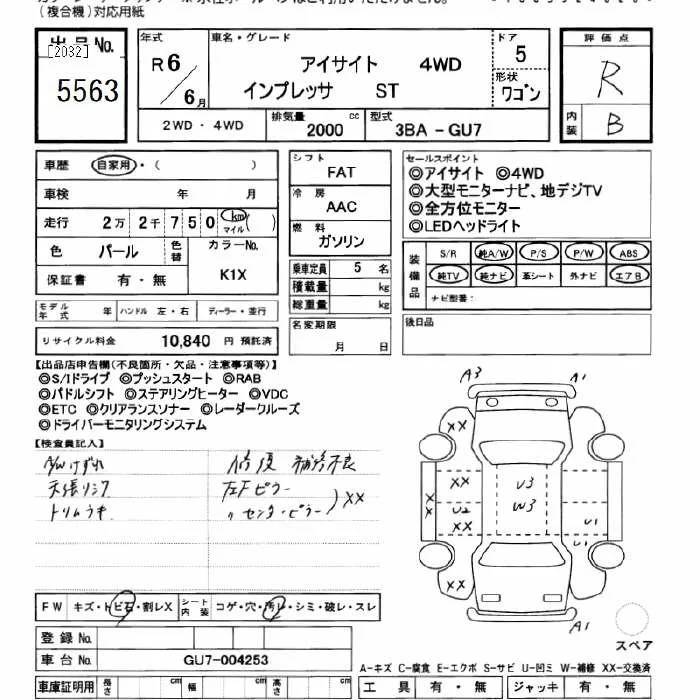 (複合機)対応用紙
出品No.
[2032]
5563
年式
R6/6月
車名・グレード
アイサイト 4WD
インプレッサ ST
ドア
5
形状
ワゴン
評価点
R
内装
B
2WD・4WD
排気量 2000 cc
型式 3BA-GU7
車歴 自家用・( )
車検 年 月
走行 2万 2千 750 km マイル ( )
色 パール 色替
カラーNo. K1X
保証書 有・無
シフト
FAT
冷房
AAC
燃料
ガソリン
乗車定員 5 名
積載量 kg
総重量 kg
セールスポイント
◎アイサイト ◎4WD
◎大型モニターナビ、地デジTV
◎全方位モニター
◎LEDヘッドライト
装備品
S/R 純A/W P/S P/W ABS
純TV 純ナビ 革シート 外ナビ エアB
ナビ型番:
モデル年式 年 ハンドル 左・右 ディーラー・並行
リサイクル料金 10,840 円 預託済
名変期限
月 日
後日品
【出品店申告欄(不良箇所・欠品・注意事項等)】
◎S/Iドライブ ◎プッシュスタート ◎RAB
◎パドルシフト ◎ステアリングヒーター ◎VDC
◎ETC ◎クリアランスソナー ◎レーダークルーズ
◎ドライバーモニタリングシステム
【検査員記入】
A/Wけずれ 修復 補修不良
天張りシワ 左Fピラー
トリムウキ 〃センターピラー )XX
A3 A1
XX
XX U3
XX U2 W3 U1
XX U1
XX
A1
スペア
FW キズ・トビ石・割レX
シート内装 コゲ・穴・汚レ・シミ・破レ・スレ
登録No.
車台No. GU7-004253
A-キズ C-腐食 E-エクボ S-サビ U-凹ミ W-補修 XX-交換済
車庫証明用 長さ cm 幅 cm 高さ cm
工具 有・無 ジャッキ 有・無